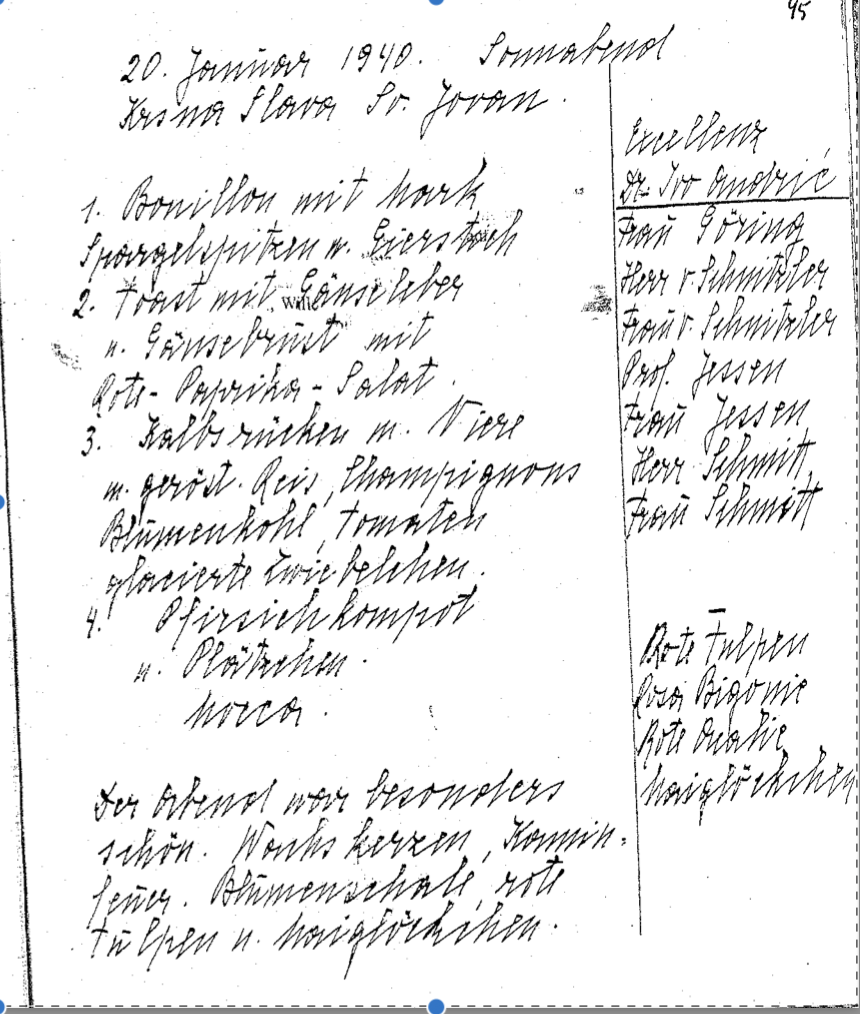 95
20. Januar 1940. Sonnabend
Krsna Slava Sv. Jovan.
1. Bouillon mit Mark
Spargelspitzen u. Eierstich
2. Toast mit Gänseleber
u. Gänsebrust mit
Rote-Paprika-Salat.
3. Kalbsrücken m. Niere
m. geröst. Reis, Champignons
Blumenkohl, Tomaten
glacierte Zwiebelchen.
4. Pfirsichkompot
u. Plätzchen.
Mocca.
Der Abend war besonders
schön. Wachskerzen, Kamin-
feuer. Blumenschale, rote
Tulpen u. Maiglöckchen.
Excellenz
Dr. Ivo Andrić
Frau Göring
Herr v. Schnitzler
Frau v. Schnitzler
Prof. Jessen
Frau Jessen
Herr Schmitt
Frau Schmitt
Rote Tulpen
Rosa Bigonie
Rote
Maiglöckchen